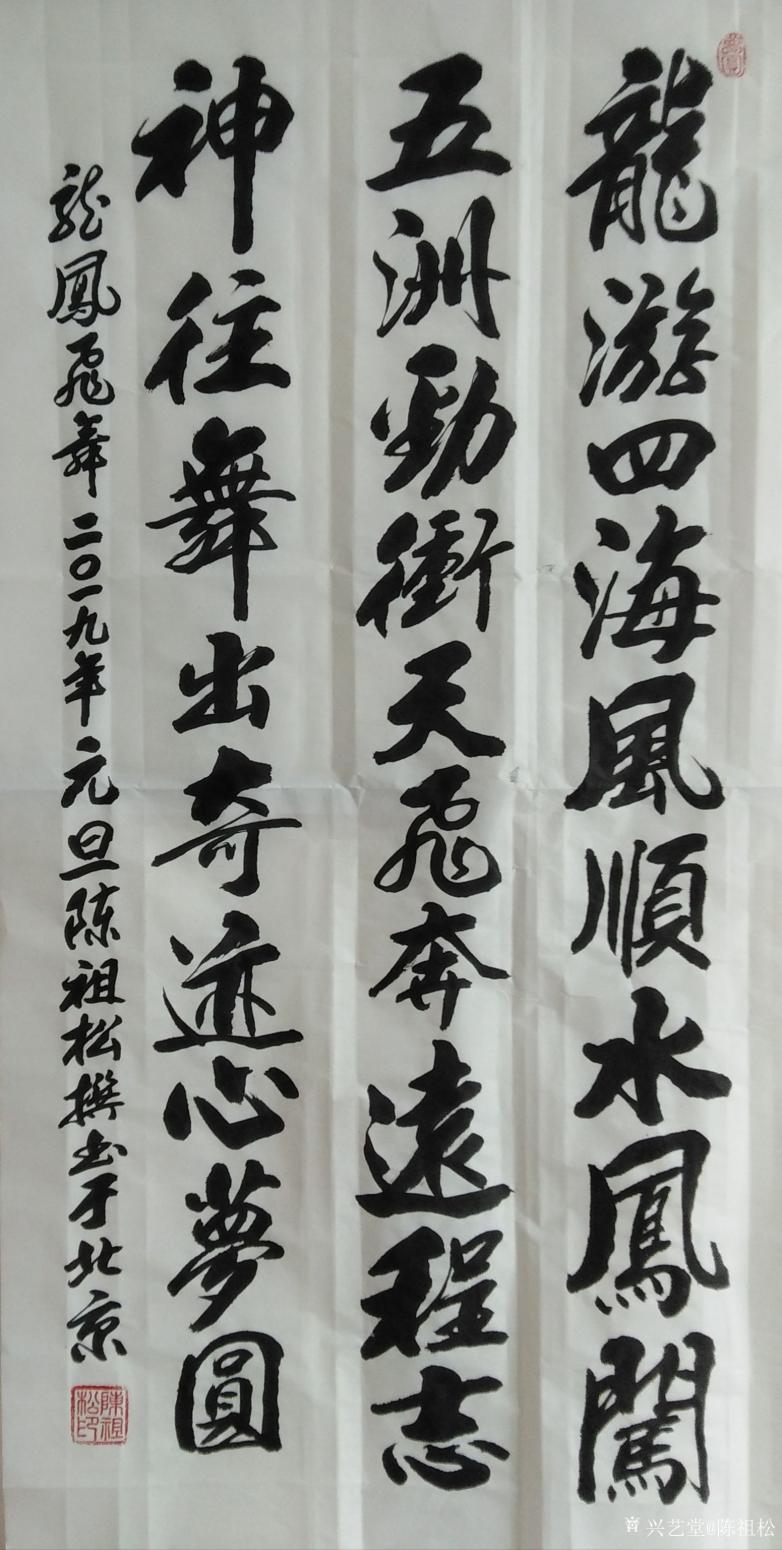 龍游四海風順水鳳闖
五洲勁衝天飛奔遠程志
神往舞出奇迹心夢圓
龙鳳飛舞二〇一九年元旦陈祖松撰书于北京
陳祖松印
兴艺堂@陈祖松